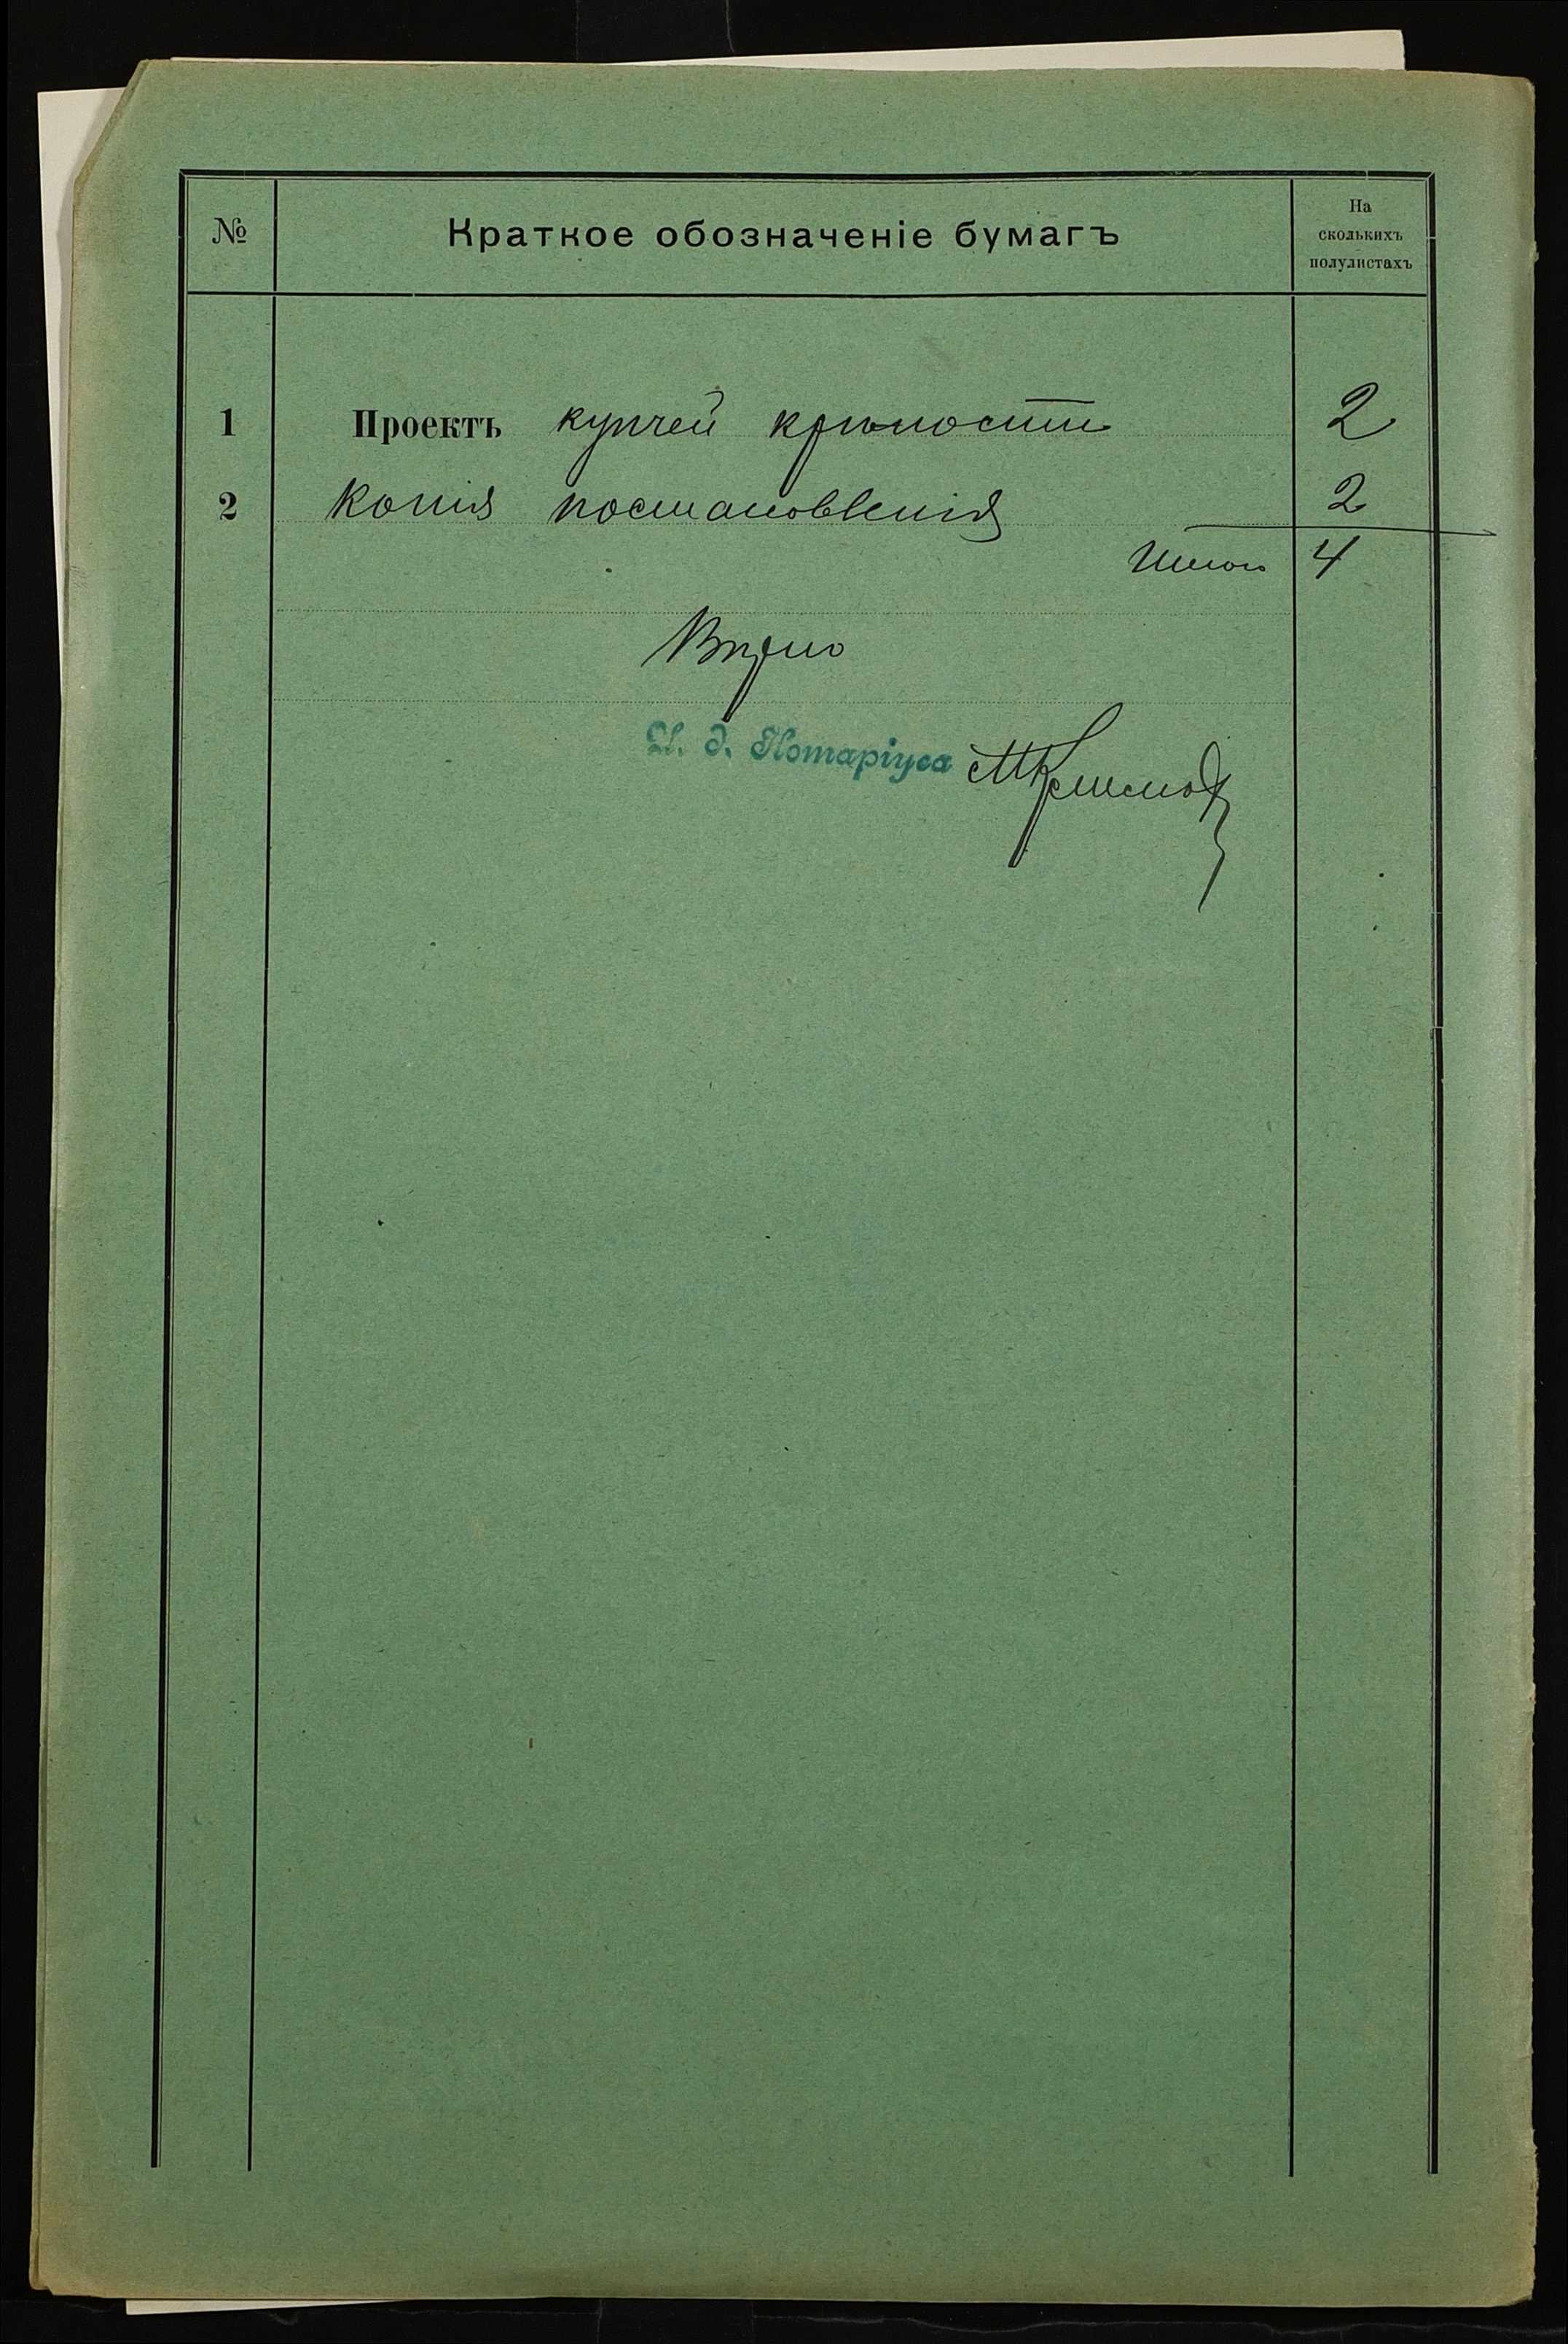 № Краткое обозначеніе бумагъ На
сколькихъ
полулистахъ
1 Проектъ купчей крѣпости 2
2 Копія постановленія 2
Итого 4
Вѣрно
И. д. Нотаріуса